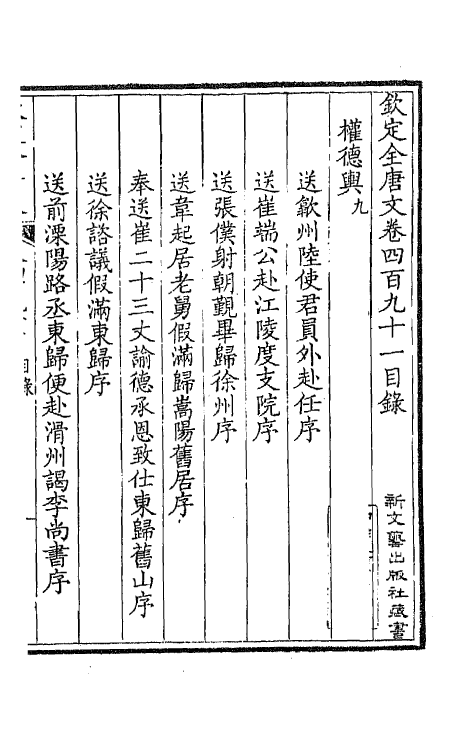 欽定全唐文卷四百九十一目錄
新文藝出版社藏書
權德輿九
送歙州陸使君員外赴任序
送崔端公赴江陵度支院序
送張僕射朝覲畢歸徐州序
送韋起居老舅假滿歸嵩陽舊居序
奉送崔二十三丈諭德承恩致仕東歸舊山序
送徐諮議假滿東歸序
送前溧陽路丞東歸便赴滑州謁李尚書序
目錄
一